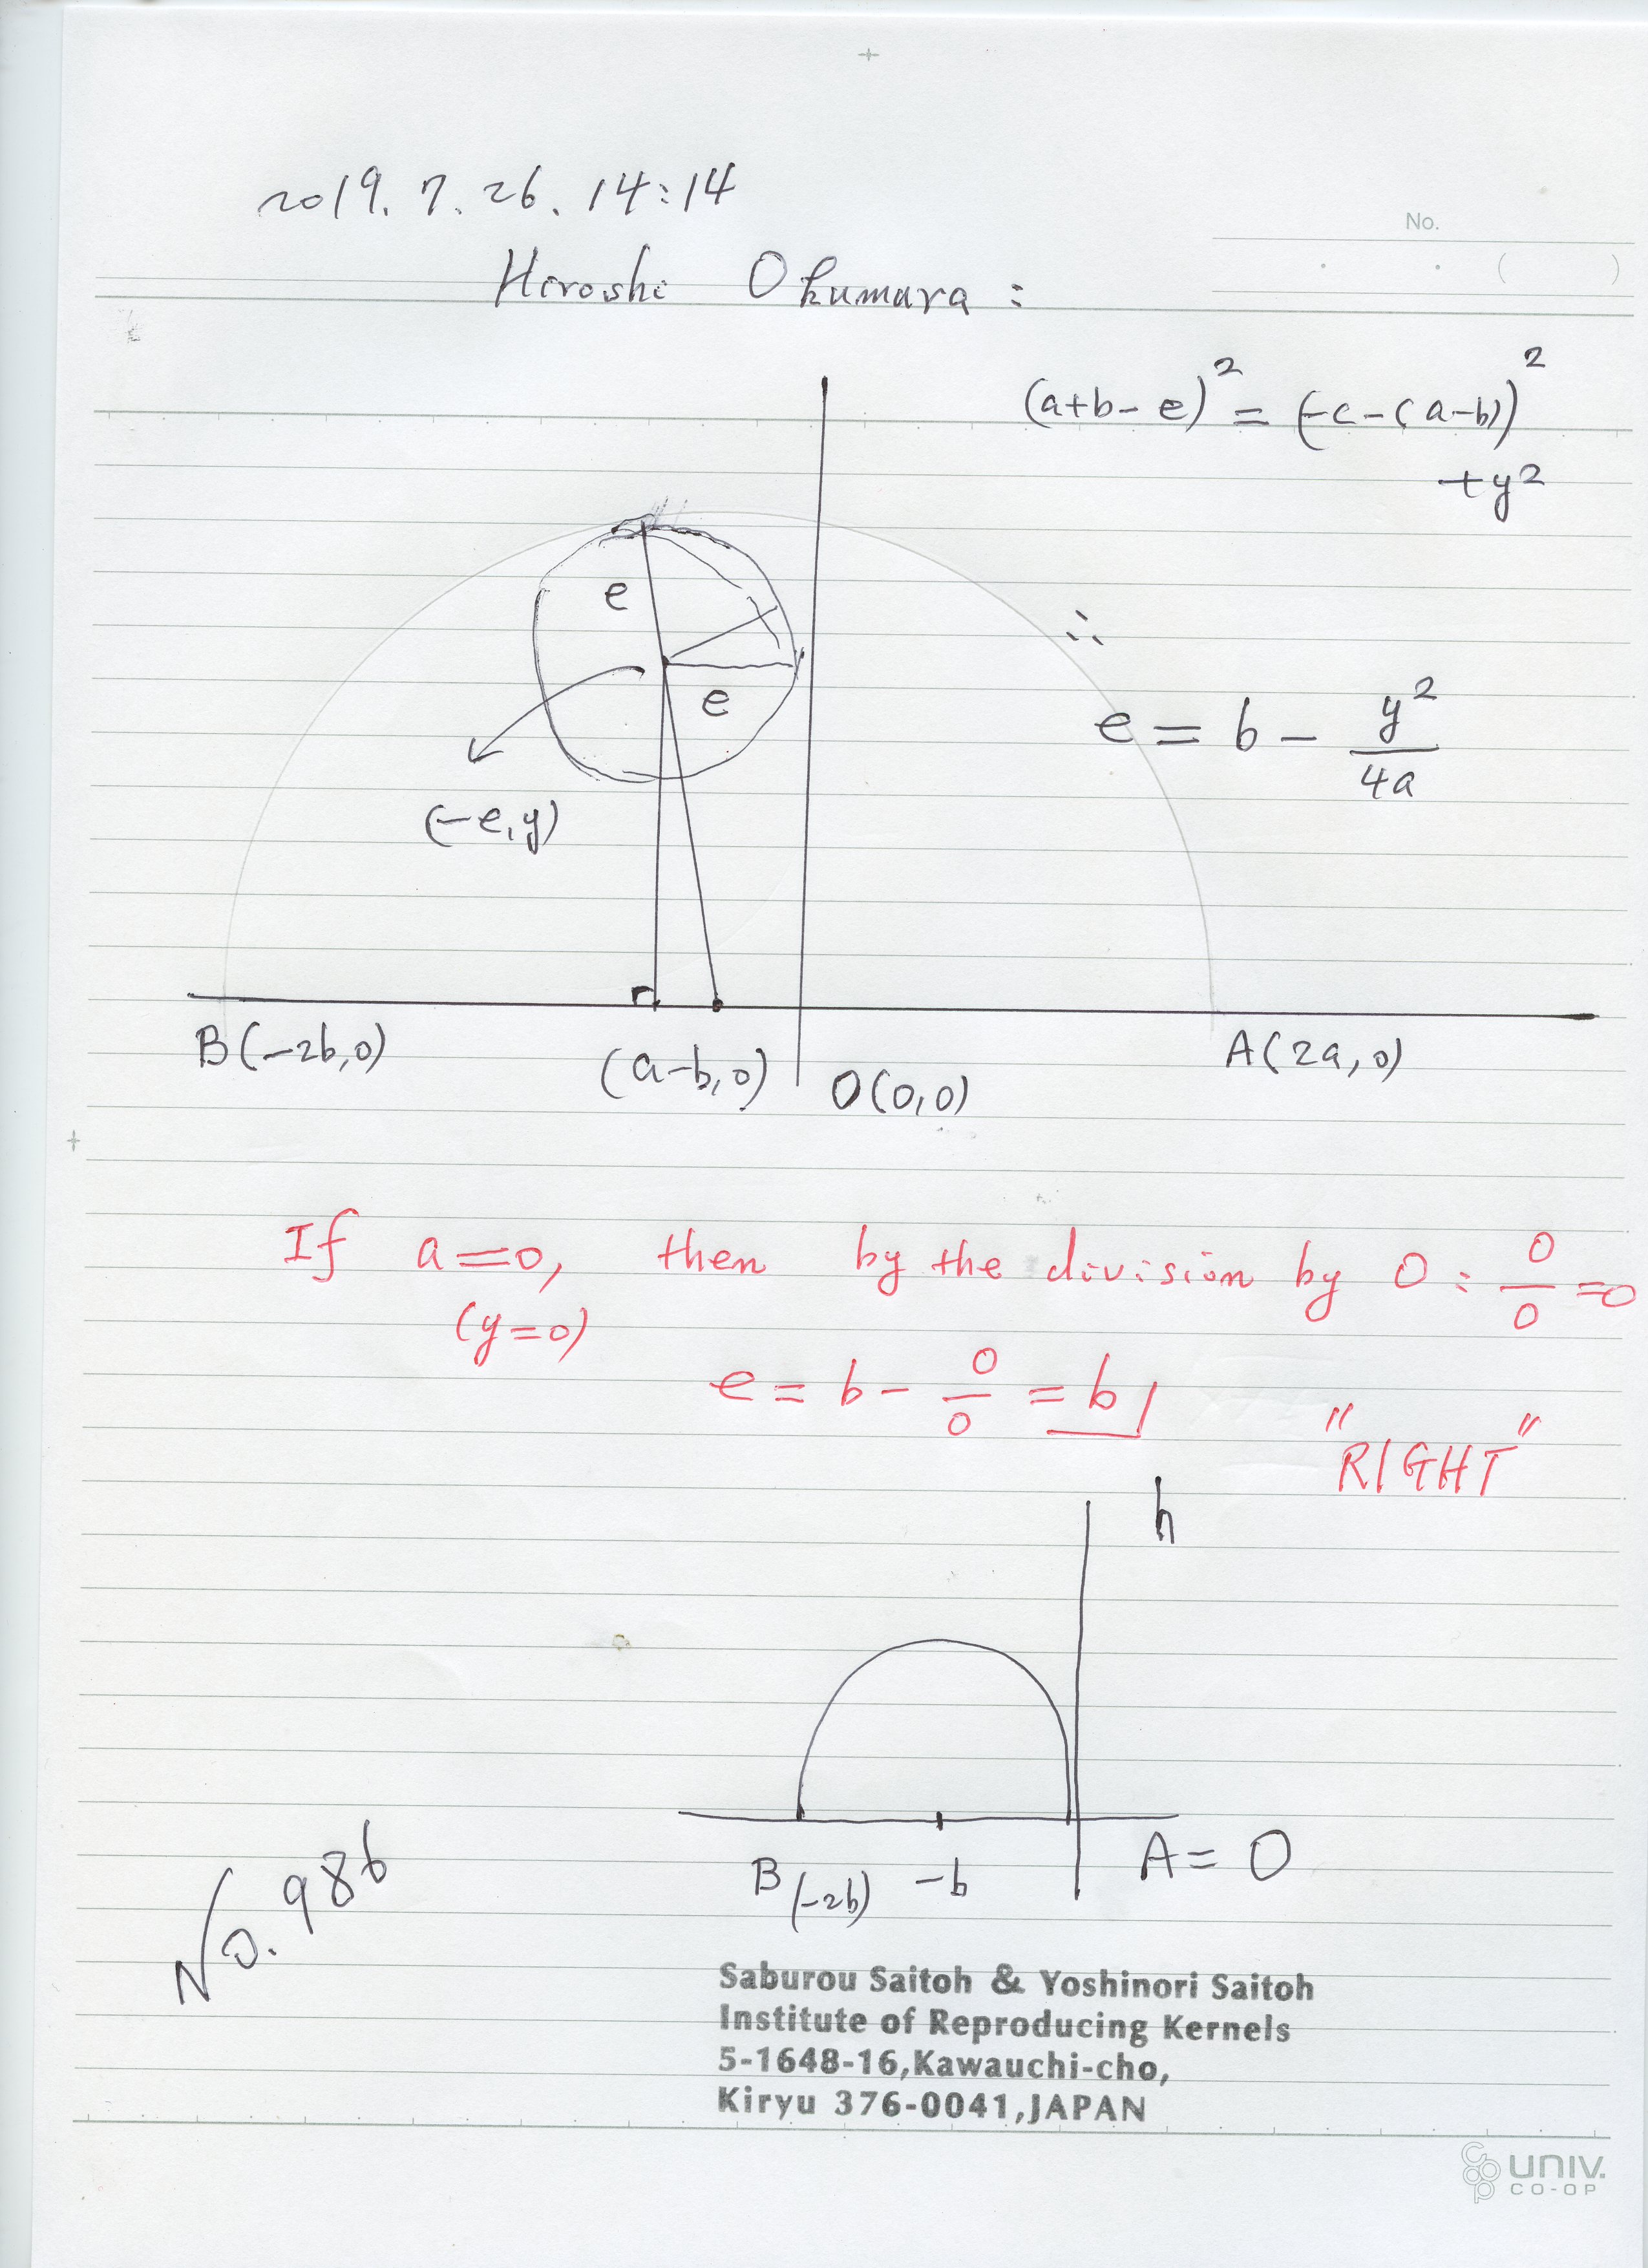 2019. 7. 26. 14:14
No.
( )
Hiroshi Okumura :
(a+b-e)² = (-c-(a-b))²
+y²
e
e
∴
e = b - y²/4a
(-e,y)
B(-2b,0)
(a-b,0)
O(0,0)
A(2a,0)
If a=0, then by the division by 0: 0/0=0
(y=0)
e = b - 0/0 = b
"RIGHT"
h
B(-2b)
-b
A=0
No. 986
Saburou Saitoh & Yoshinori Saitoh
Institute of Reproducing Kernels
5-1648-16,Kawauchi-cho,
Kiryu 376-0041,JAPAN
UNIV.
CO-OP